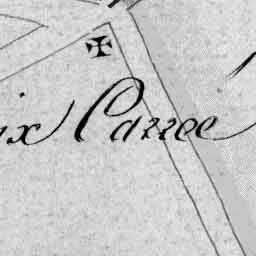 ix Carree